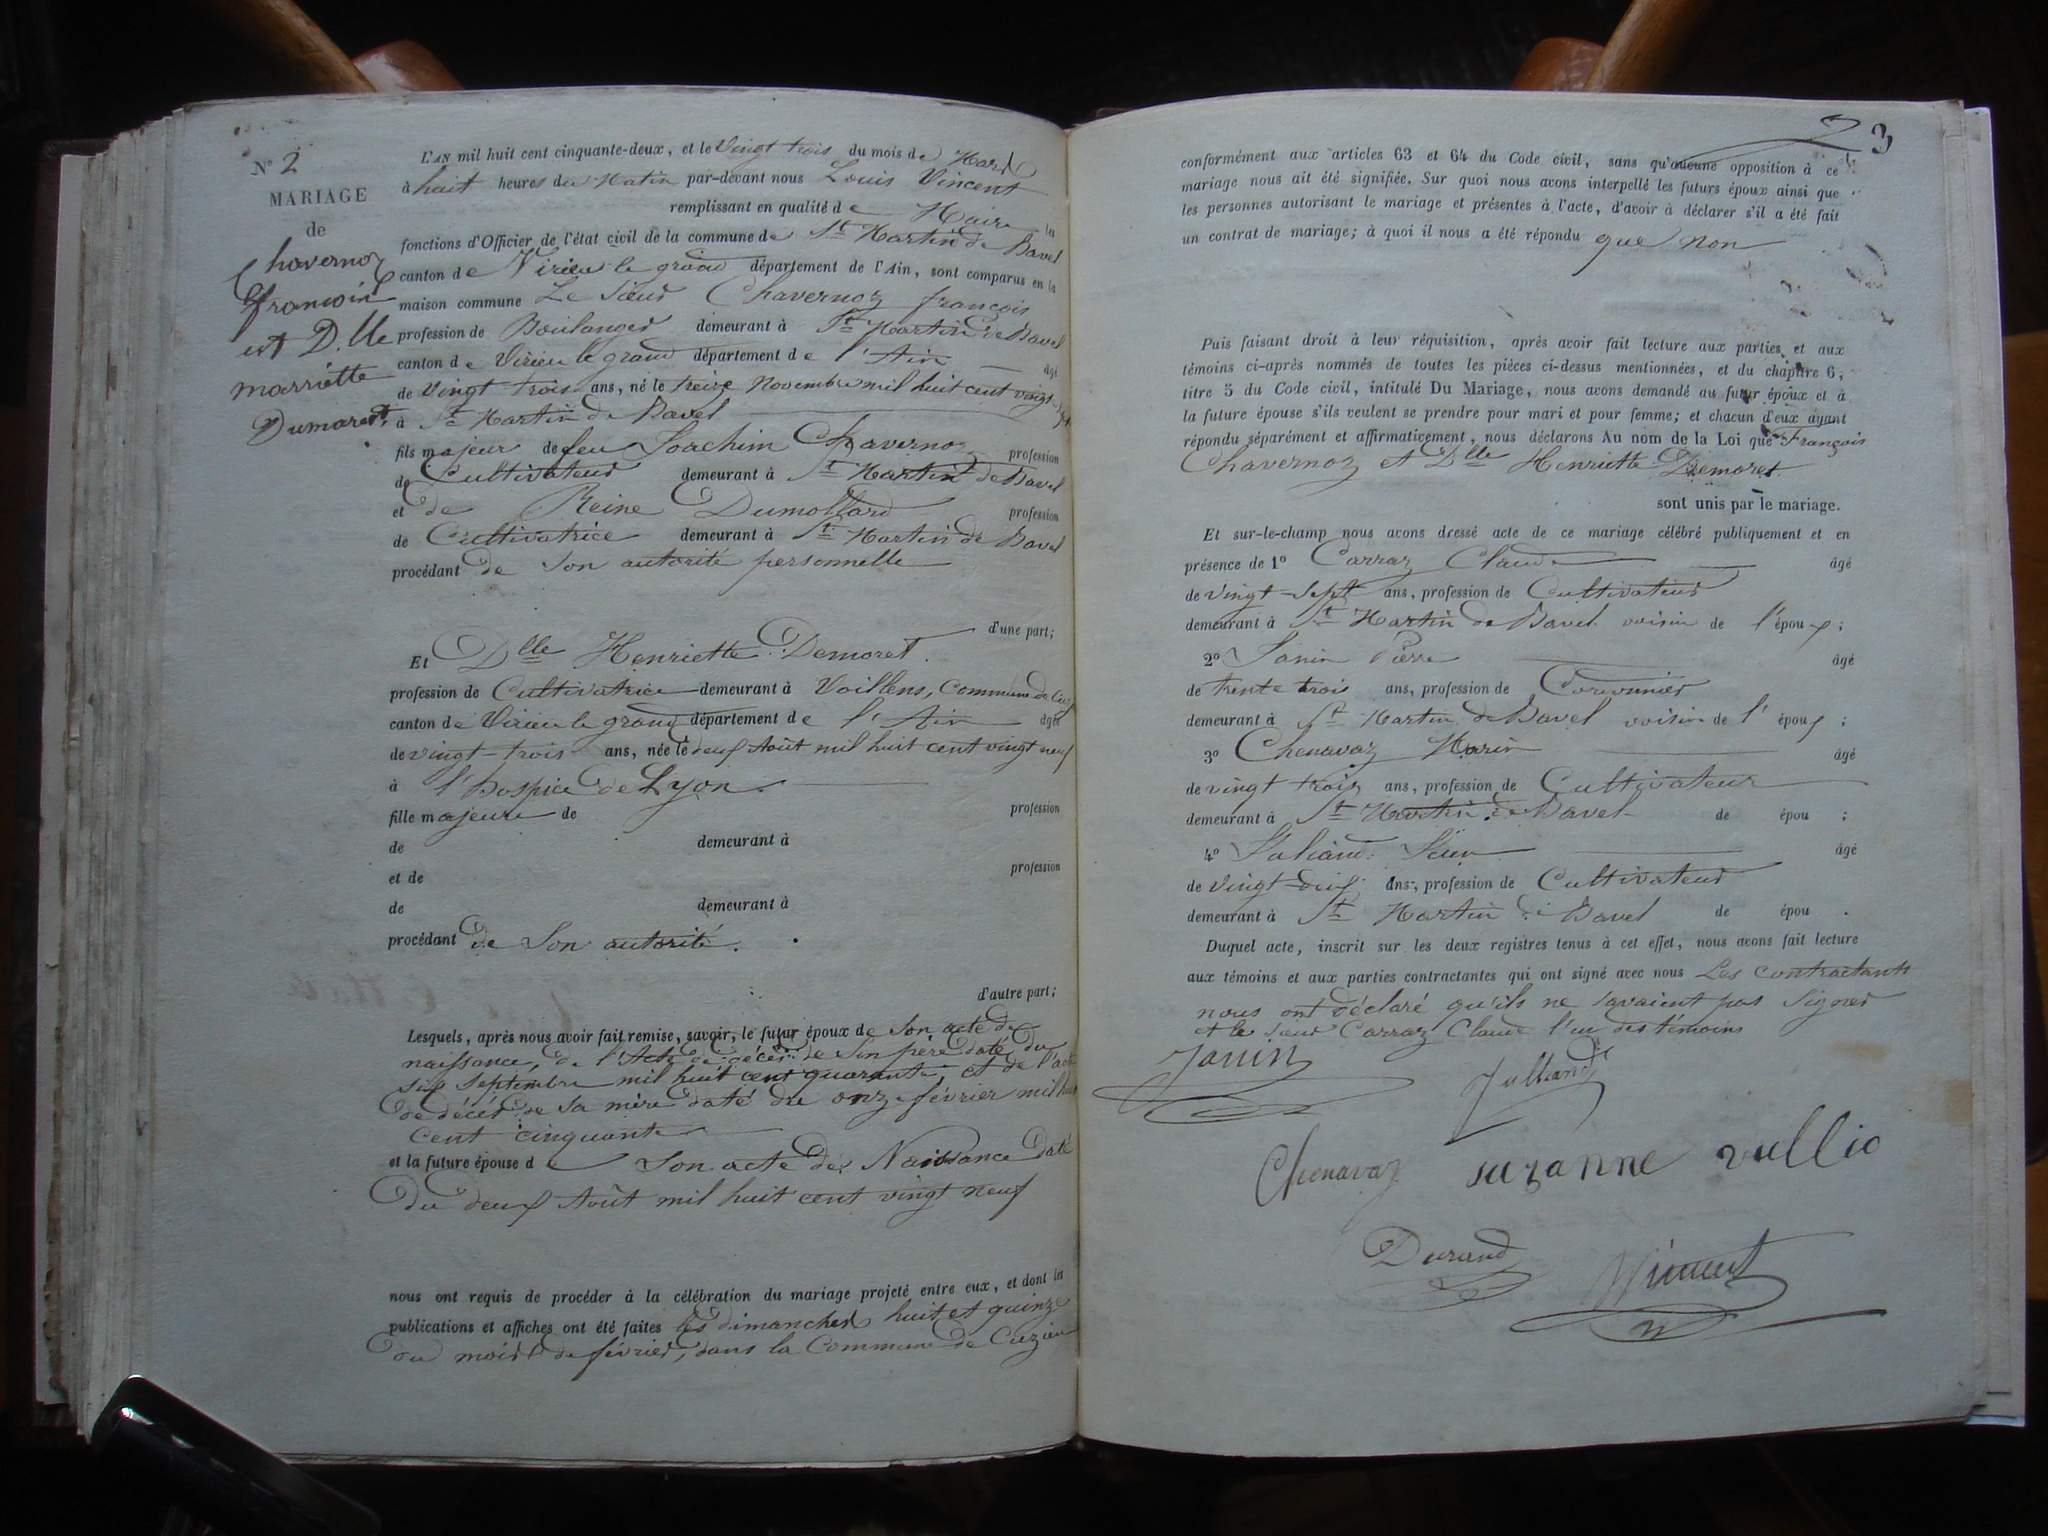 N° 2
MARIAGE
de
Chavernoz
françois
et D.lle
marriette
Dumoret.
L'AN mil huit cent cinquante-deux, et le Vingt trois du mois de Mars
à huit heures du Matin par-devant nous Louis Vincent
remplissant en qualité de Maire les
fonctions d'Officier de l'état civil de la commune de St Martin de Bavel
canton de Virieu le grand département de l'Ain, sont comparus en la
maison commune Le Sieur Chavernoz françois
profession de Boulanger demeurant à St Martin de Bavel
canton de Virieu le grand département de l'Ain âgé
de Vingt trois ans, né le treize Novembre mil huit cent vingt-
à St Martin de Bavel
fils majeur de feu Joachim Chavernoz profession
de Cultivateur demeurant à St Martin de Bavel
et de Reine Dumollard profession
de Cultivatrice demeurant à St Martin de Bavel
procédant de son autorité personnelle
d'une part;
Et Dlle Henriette Demoret.
profession de Cultivatrice demeurant à Voillens, Commune de
canton de Virieu le grand département de l'Ain âgée
de vingt-trois ans, née le deux Août mil huit cent vingt neuf
à l'hospice de Lyon.
fille majeure de profession
de demeurant à
et de profession
de demeurant à
procédant de Son autorité.
d'autre part;
Lesquels, après nous avoir fait remise, savoir, le futur époux de Son acte de
naissance, de l'Acte de décès de Son père daté du
six septembre mil huit cent quarante, et de l'acte
de décès de sa mère daté du onze février mil huit
cent cinquante
et la future épouse de Son acte de Naissance daté
Du deux Août mil huit cent vingt neuf
nous ont requis de procéder à la célébration du mariage projeté entre eux, et dont les
publications et affiches ont été faites les dimanches huit et quinze
du mois de février, dans la Commune de Cuzieu
23
conformément aux articles 63 et 64 du Code civil, sans qu'aucune opposition à ce
mariage nous ait été signifiée. Sur quoi nous avons interpellé les futurs époux ainsi que
les personnes autorisant le mariage et présentes à l'acte, d'avoir à déclarer s'il a été fait
un contrat de mariage; à quoi il nous a été répondu que non
Puis faisant droit à leur réquisition, après avoir fait lecture aux parties et aux
témoins ci-après nommés de toutes les pièces ci-dessus mentionnées, et du chapitre 6,
titre 5 du Code civil, intitulé Du Mariage, nous avons demandé au futur époux et à
la future épouse s'ils veulent se prendre pour mari et pour femme; et chacun d'eux ayant
répondu séparément et affirmativement, nous déclarons Au nom de la Loi que François
Chavernoz et Dlle Henriette Demoret
sont unis par le mariage.
Et sur-le-champ nous avons dressé acte de ce mariage célébré publiquement et en
présence de 1° Carraz Claude âgé
de vingt-sept ans, profession de Cultivateur
demeurant à St Martin de Bavel voisin de l'époux;
2° Janin Pierre âgé
de trente trois ans, profession de Cordonnier
demeurant à St Martin de Bavel voisin de l'époux;
3° Chenavaz Marin âgé
de vingt trois ans, profession de Cultivateur
demeurant à St Martin de Bavel de épou ;
4° âgé
de Vingt-deux ans, profession de Cultivateur
demeurant à St Martin de Bavel de épou .
Duquel acte, inscrit sur les deux registres tenus à cet effet, nous avons fait lecture
aux témoins et aux parties contractantes qui ont signé avec nous Les contractants
nous ont déclaré qu'ils ne savaient pas Signer
et le sieur Carraz Claude l'un des témoins
Janin
Julliand
Chenavaz suzanne vullio
Durand Vincent